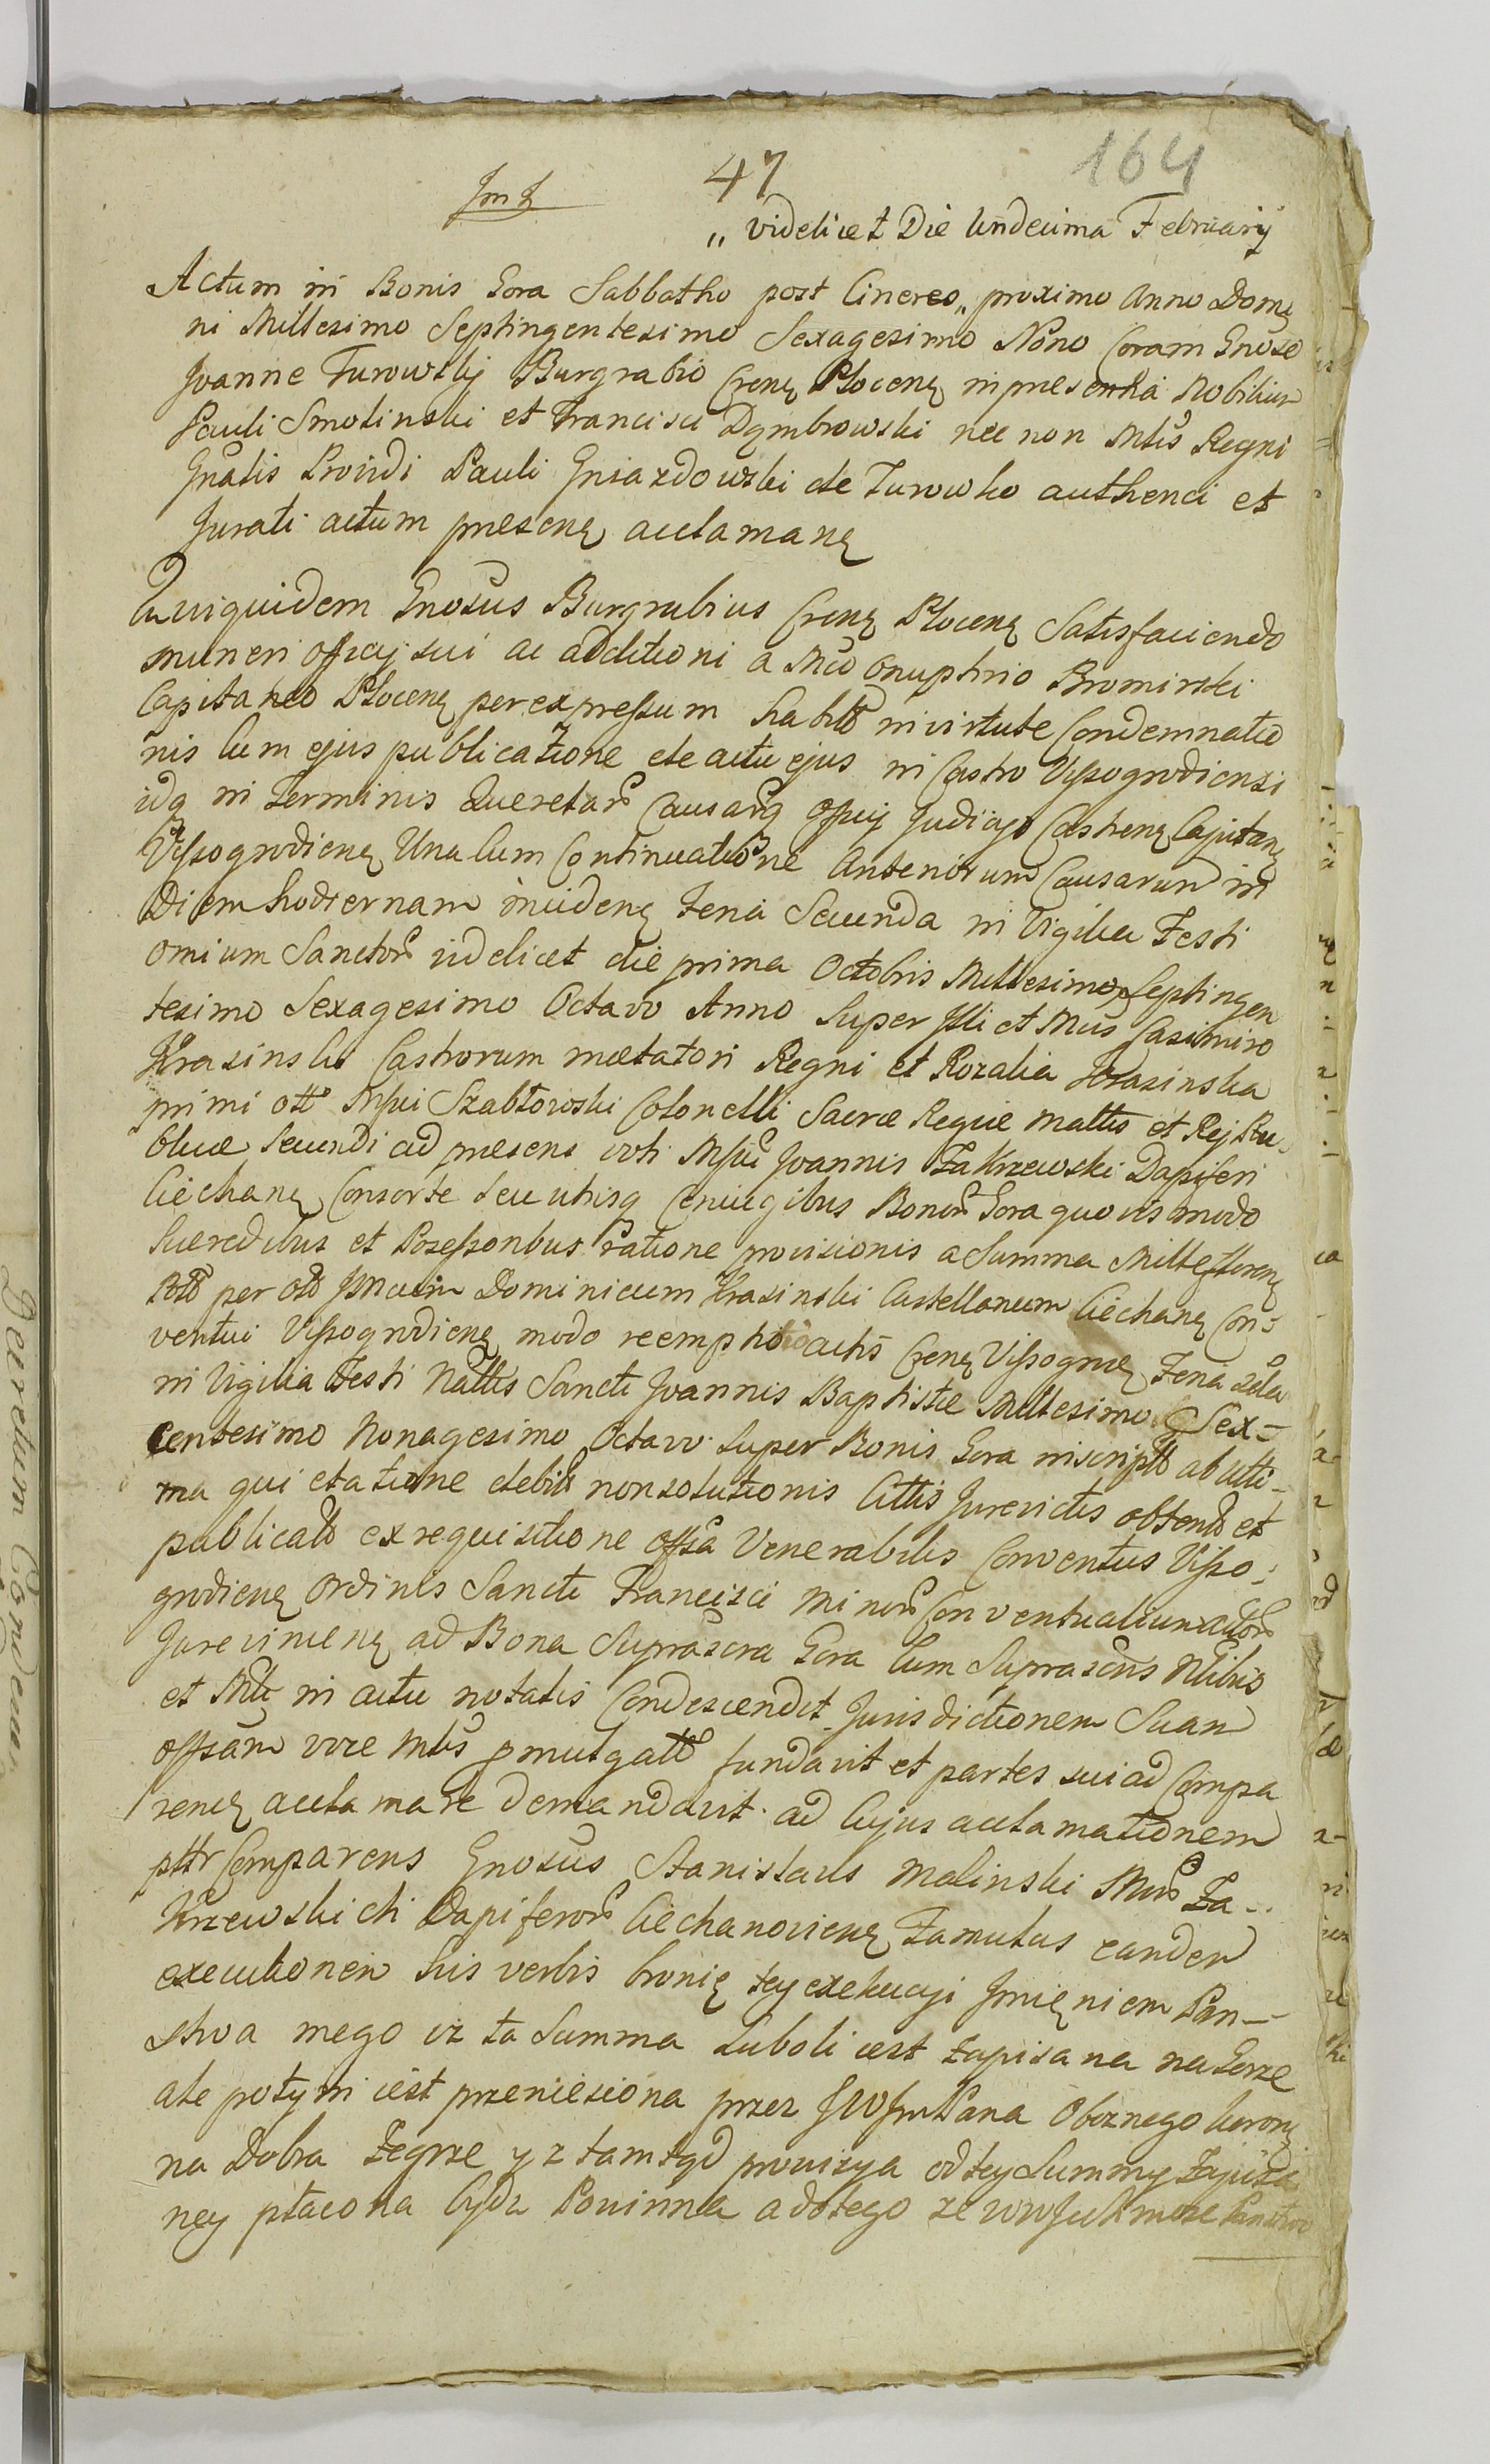 47
164
Jm J
„ videlicet Die Undecima February
Actum in Bonis Gora Sabbatho post Cineres „ proximo Anno Domi
ni Millesimo Septingentesimo Sexagesimo Nono Coram Gnoso
Joanne Turowskij Burgrabio Crenę Plocenę in presentia Nobilium
Pauli Smolinski et Francisci Dąmbrowski nec non Mlis Regni
Gnalis Providi Pauli Gniazdowski de Turowko authenci et
Jurati actum presenę acclamanę
Quiquidem Gnosus Burgrabius Crenę Plocenę Satisfaciendo
muneri officij sui ac additioni a Mco Onuphrio Bromirski
Capitaneo Plocenę per expressum habito in virtute Condemnatio
nis Cum ejus publicatione de actu ejus in Castro Vissogrodiensi
idq in Terminis Queretarū Causarq Officij Judicijo Castrenę Capitanę
Vissogrodienę Una Cum Continuatione Anteriorum Causarum in
Diem hodiernam incidenę Feria Secunda in Vigilia Festi
Omium Sanctorū videlicet die prima Octobris Millesimo Septingen
tesimo Sexagesimo Octavo Anno Super Illi et Mcis Casimiro
Krasinski Castrorum metatori Regni et Rozalia Krasinska
primi ottº Mfici Szabłowski Colonelli Sacræ Regiæ Mattis et Rej Pu-
blicæ Secundi ad presens voti Mfici Joannis Zakrzewski Dapiferi
Ciechanę Consorte seu utrisq Conjugibus Bonorū Gora quovis modo
hæredibus et Possessoribus ratione provisionis a Summa Mille florenę
Ptto per olo Jllmcum Dominicum Krasinski Castellanum Ciechanę Con-
ventui Vissogrodienę modo reemptorio actis Crenę Vissogrodę Feria 2da
in Vigilia Festi Nattis Sancti Joannis Baptistæ Millesimo Sex-
centesimo Nonagesimo Octavo super Bonis Gora inscripto ab atti-
ma qui etatione debito non solutionis Cittis Jurevictis obtento et
publicato ex requisitione offsa Venerabilis Conventus Visso-
grodienę Ordinis Sancti Francisci Minorū Conventualium actorū
Jurevincenę ad Bona Suprascra Gora Cum Suprascris Nlibus
et Mlti in actu notatis Condescendit Jurisdictionem Suam
offsam voce Mlis pmulgato fundavit et partes sui ad Compa
renę acclamare demandavit ad Cujus acclamationem
pttr Comparens Gnosus Stanislaus Malinski Mcorū Za-
krzewskich Dapiferorū Ciechanovienę Famulus eandem
executionem his verbis bronię tey exekucyi Jmięniem Pan-
stwa mego iz ta Summa luboli iest zapisana na Gorze
ale potym iest przeniesiona przez JWJmPana Oboznego korонę
na Dobra Zegrze y z tamtąd prowizya od tey Summy zapisa
ney płacona bydz Powinna a do tego ze WWJchmosc Panstwo
Decretum Condem